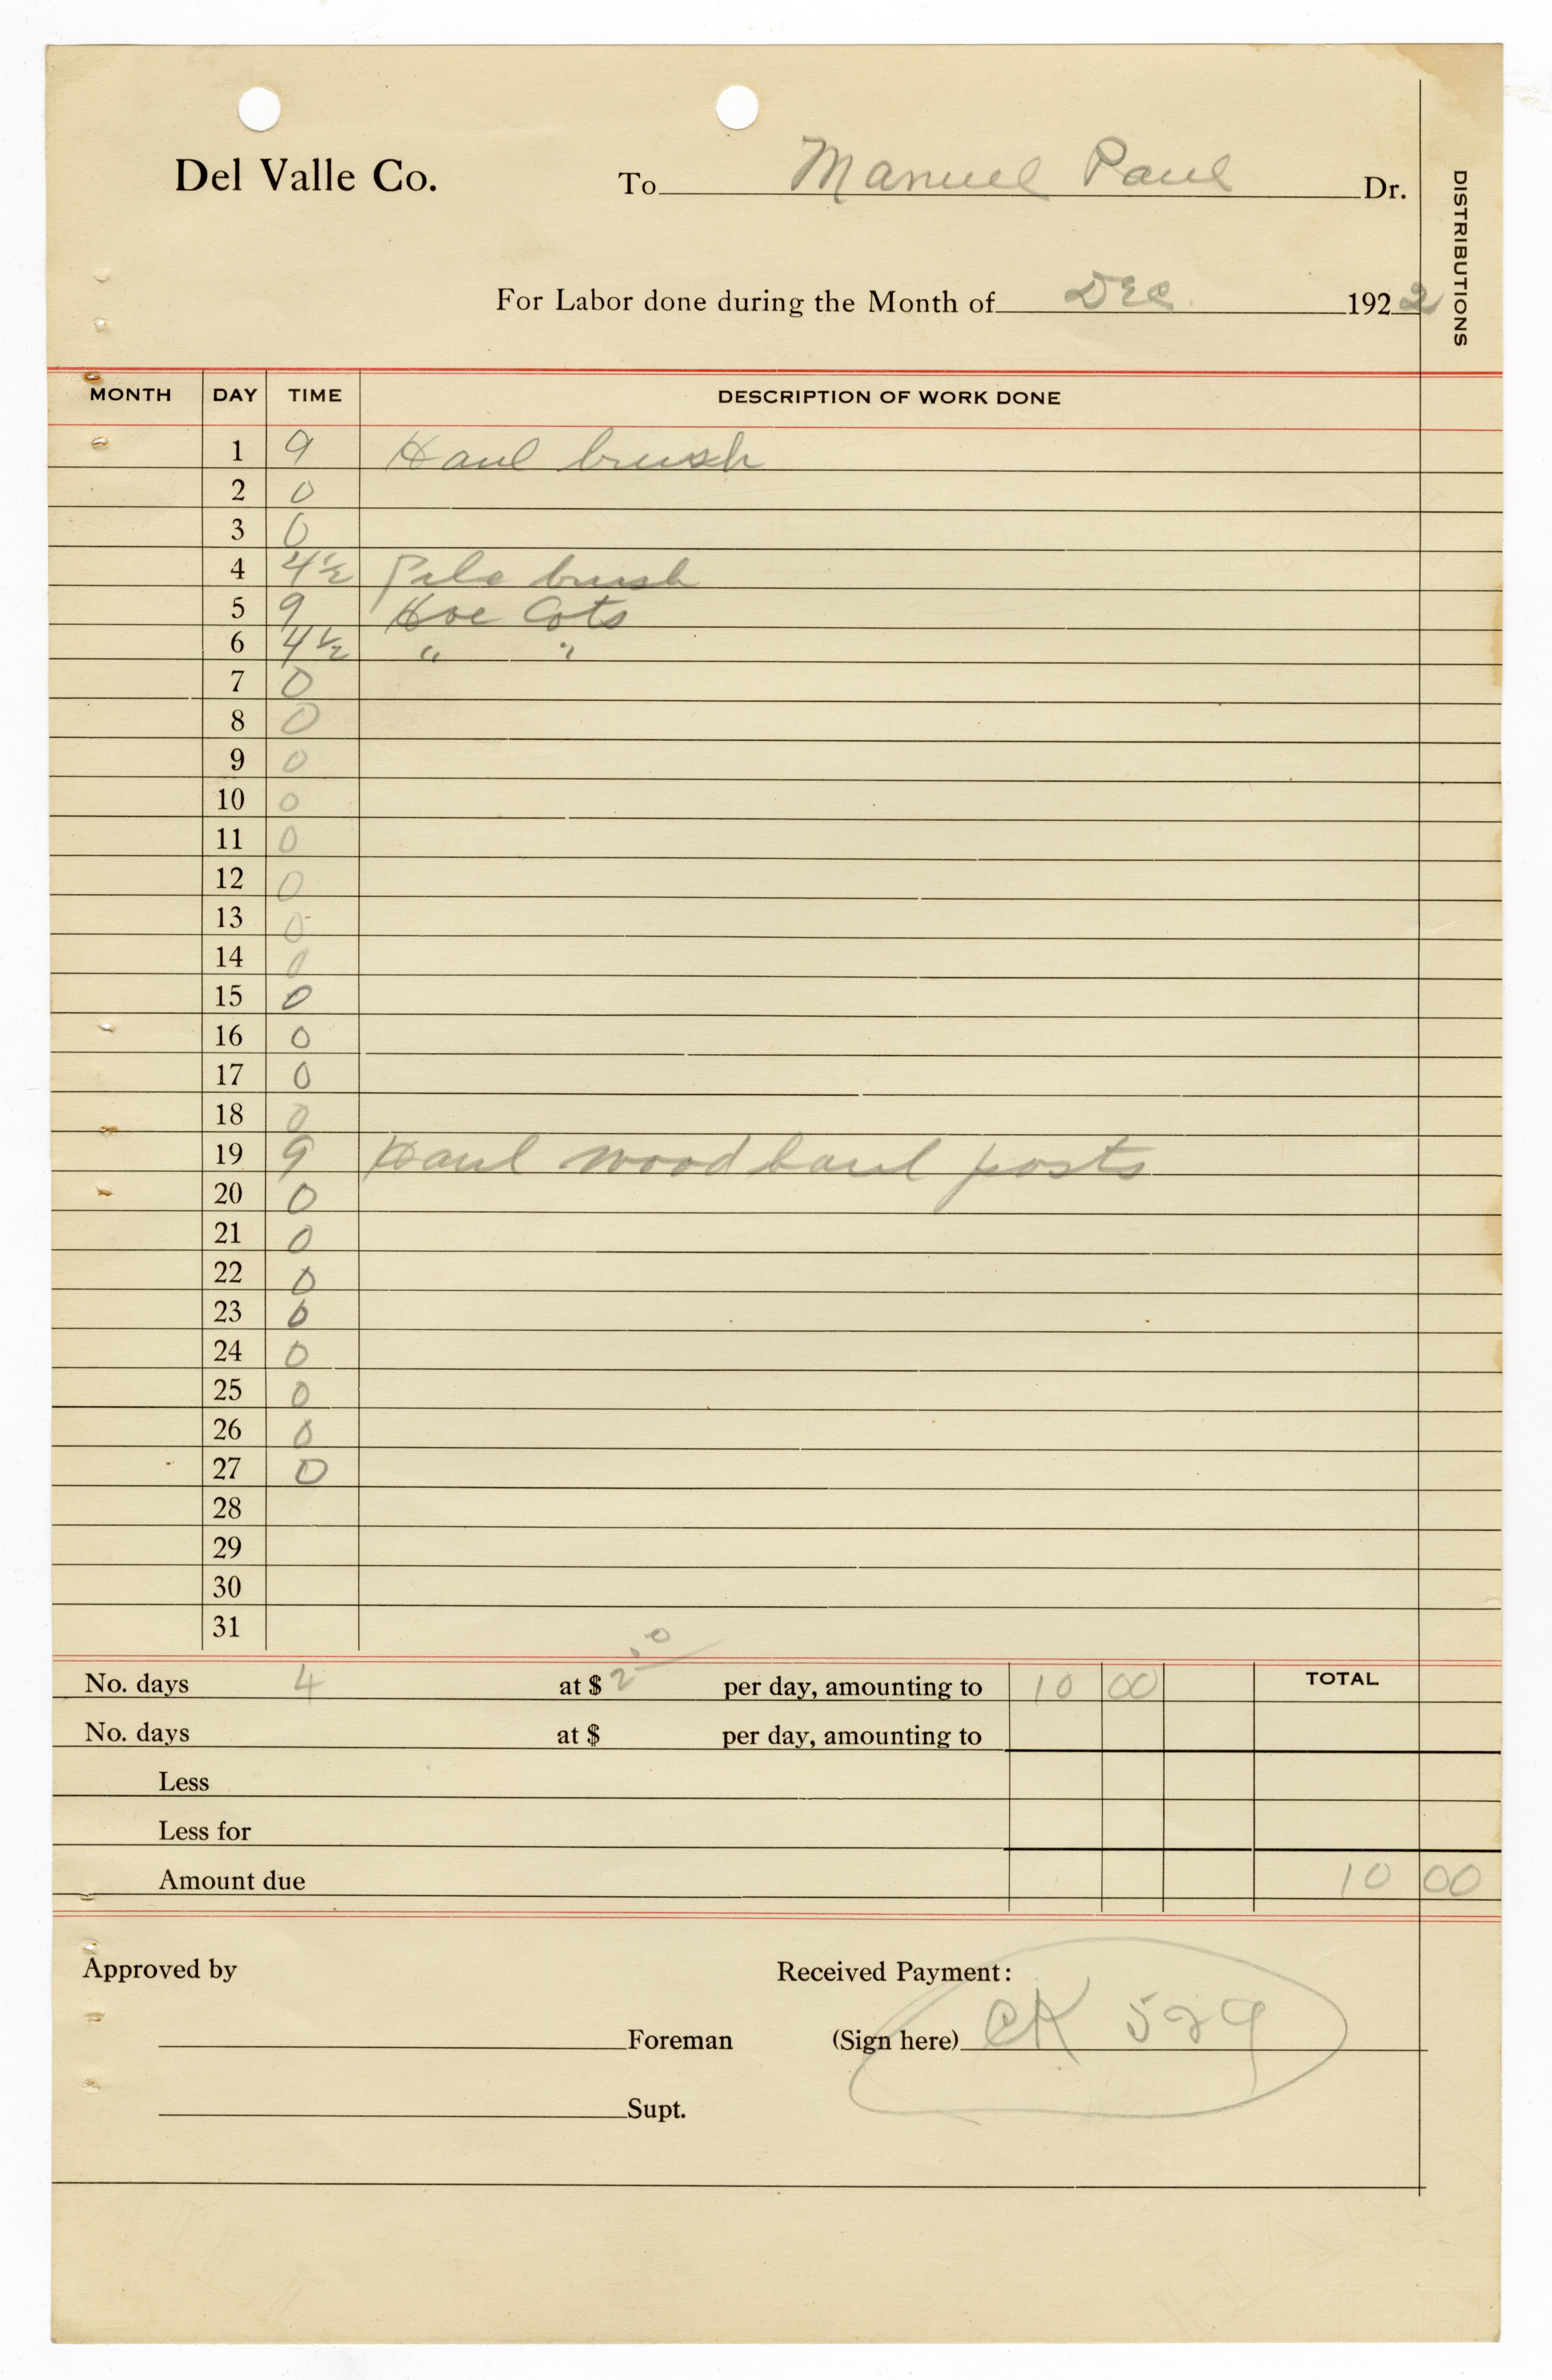 Del Valle Co. To Manuel Paul Dr.
DISTRIBUTIONS
For Labor done during the Month of Dec. 1922
MONTH DAY TIME DESCRIPTION OF WORK DONE
1 9 Haul brush
2 0
3 0
4 4½ Pile brush
5 9 Hoe Cots
6 4½ " "
7 0
8 0
9 0
10 0
11 0
12 0
13 0
14 0
15 0
16 0
17 0
18 0
19 9 Haul wood haul posts
20 0
21 0
22 0
23 0
24 0
25 0
26 0
27 0
28
29
30
31
No. days 4 at $ per day, amounting to 10 00 TOTAL
No. days at $ per day, amounting to
Less
Less for
Amount due 10 00
Approved by Received Payment:
Foreman (Sign here) CK 529
Supt.